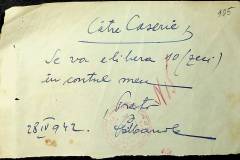 105
Către Caserie,
Se va elibera 10 (zeci)
în contul meu
28 IV 942.